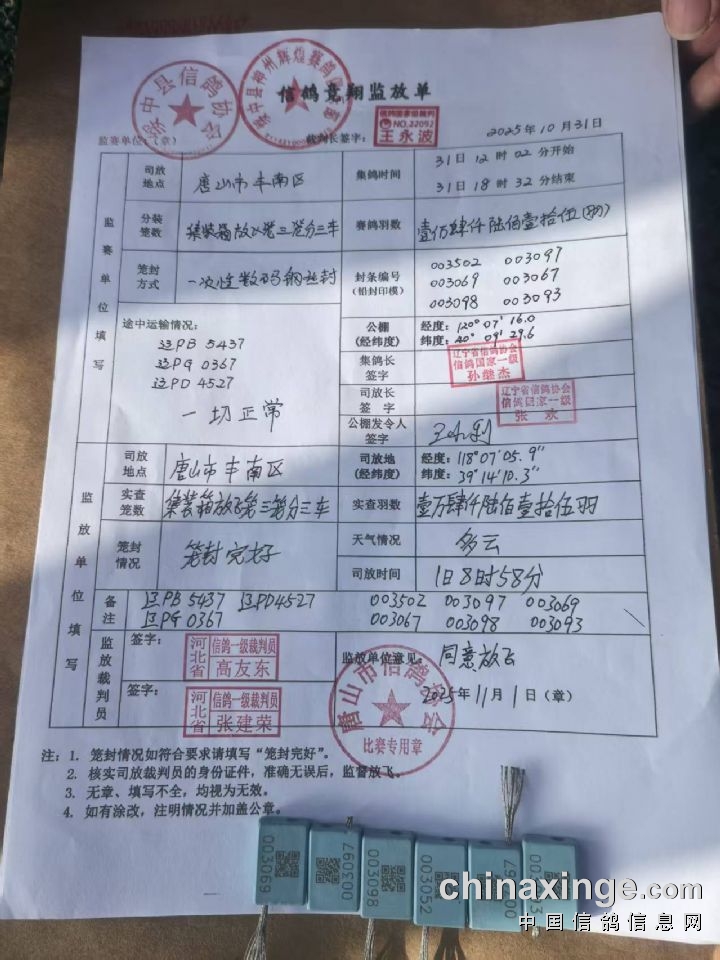 信鸽竞翔监放单
绥中县信鸽协会
信鸽国家级裁判
NO.22092
王永波
监赛单位:(章)
裁判长签字:
2025年10月31日
监赛单位填写
司放地点
唐山市丰南区
集鸽时间
31日12时02分开始
31日18时32分结束
分装笼数
赛鸽羽数
壹万肆仟陆佰壹拾伍(羽)
笼封方式
一次性数码钢丝封
封条编号
(铅封印模)
003502 003097
003069 003067
003098 003093
途中运输情况:
辽PB 5437
辽PG 0367
辽PD 4527
一切正常
公棚
(经纬度)
经度:120°07′16.0
纬度:40°09′29.6
集鸽长
签字
辽宁省信鸽协会
信鸽国家一级
孙继杰
司放长
签 字
辽宁省信鸽协会
信鸽国家一级
张欢
公棚发令人
签字
监放单位填写
司放地点
唐山市丰南区
司放地
(经纬度)
经度:118°07′05.9″
纬度:39°14′10.3″
实查笼数
集装箱放飞笼三笼分三车
实查羽数
壹万肆仟陆佰壹拾伍羽
笼封情况
笼封完好
天气情况
多云
司放时间
1日8时58分
备注
辽PB 5437 辽PD4527
辽PG 0367
003502 003097 003069
003067 003098 003093
监放裁判员
签字:
河北省
信鸽一级裁判员
高友东
签字:
河北省
信鸽一级裁判员
张建荣
监放单位意见:
同意放飞
2025年11月1日(章)
唐山市信鸽协会
比赛专用章
注:1. 笼封情况如符合要求请填写“笼封完好”。
2. 核实司放裁判员的身份证件,准确无误后,监督放飞。
3. 无章、填写不全,均视为无效。
4. 如有涂改,注明情况并加盖公章。
003069
003097
003098
003052
chinaxinge.com
中国信鸽信息网